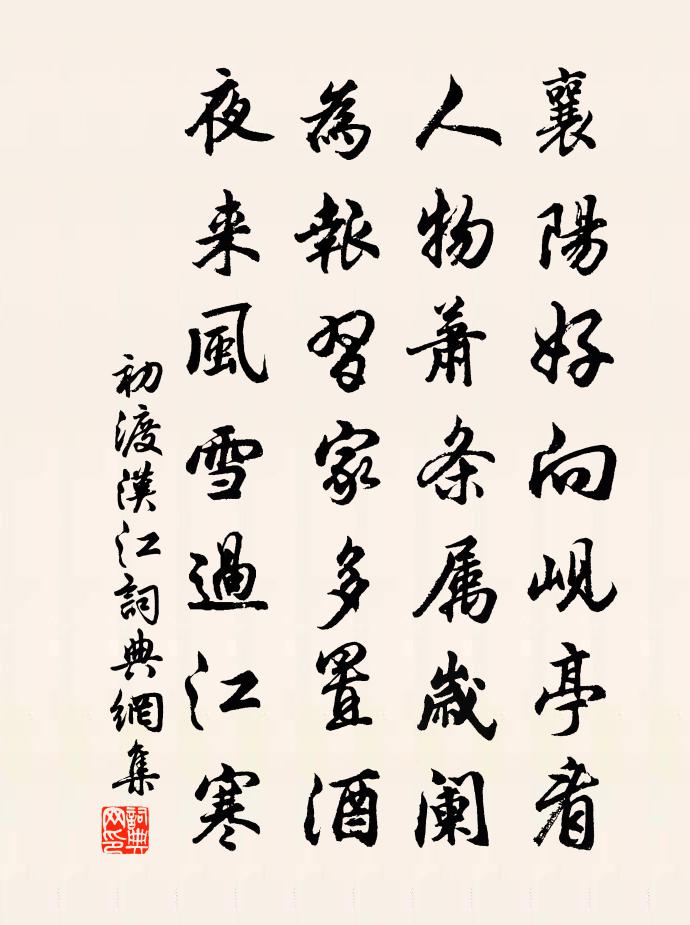 襄陽好向峴亭看
人物萧条属歲阑
為報習家多置酒
夜来風雪過江寒
初渡漢江詞典網集
詞典网印